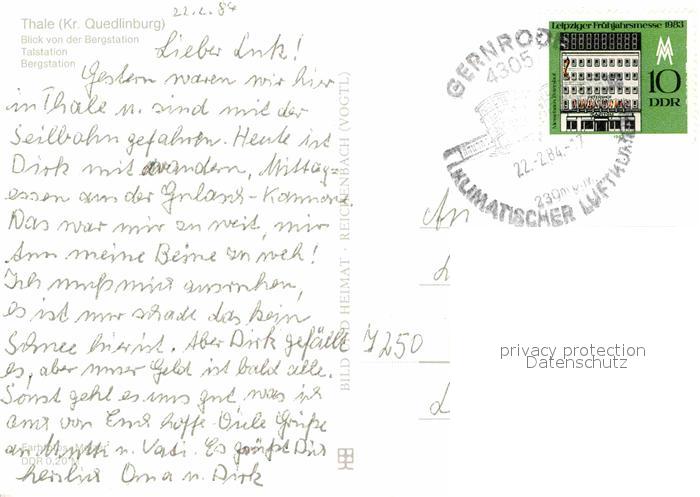 22.2.84
Thale (Kr. Quedlinburg)
Blick von der Bergstation
Talstation
Bergstation
Lieber Luk!
Gestern waren wir hier
in Thale u. sind mit der
Seilbahn gefahren. Heute ist
Dirk mit wandern, Mittag-
essen aus der Gulasch-Kanone.
Das war mir zu weit, mir
tun meine Beine zu weh!
Ich muß mich ausruhen,
es ist nur schade das kein
Schnee hier ist. Aber Dirk gefällt
es, aber unser Geld ist bald alle.
Sonst geht es uns gut was ich
auch von Euch hoffe. Viele Grüße
an Mutti u. Vati. Es grüßt Dich
herzlich Oma u. Dirk
DDR 0,20
BILD UND HEIMAT · REICHENBACH (VOGTL)
An
7250
Leipziger Frühjahrsmesse 1983
Messehaus Petershof
10
DDR
GERNRODE
4305
22.2.84.-17
KLIMATISCHER LUFTKURORT
privacy protection
Datenschutz